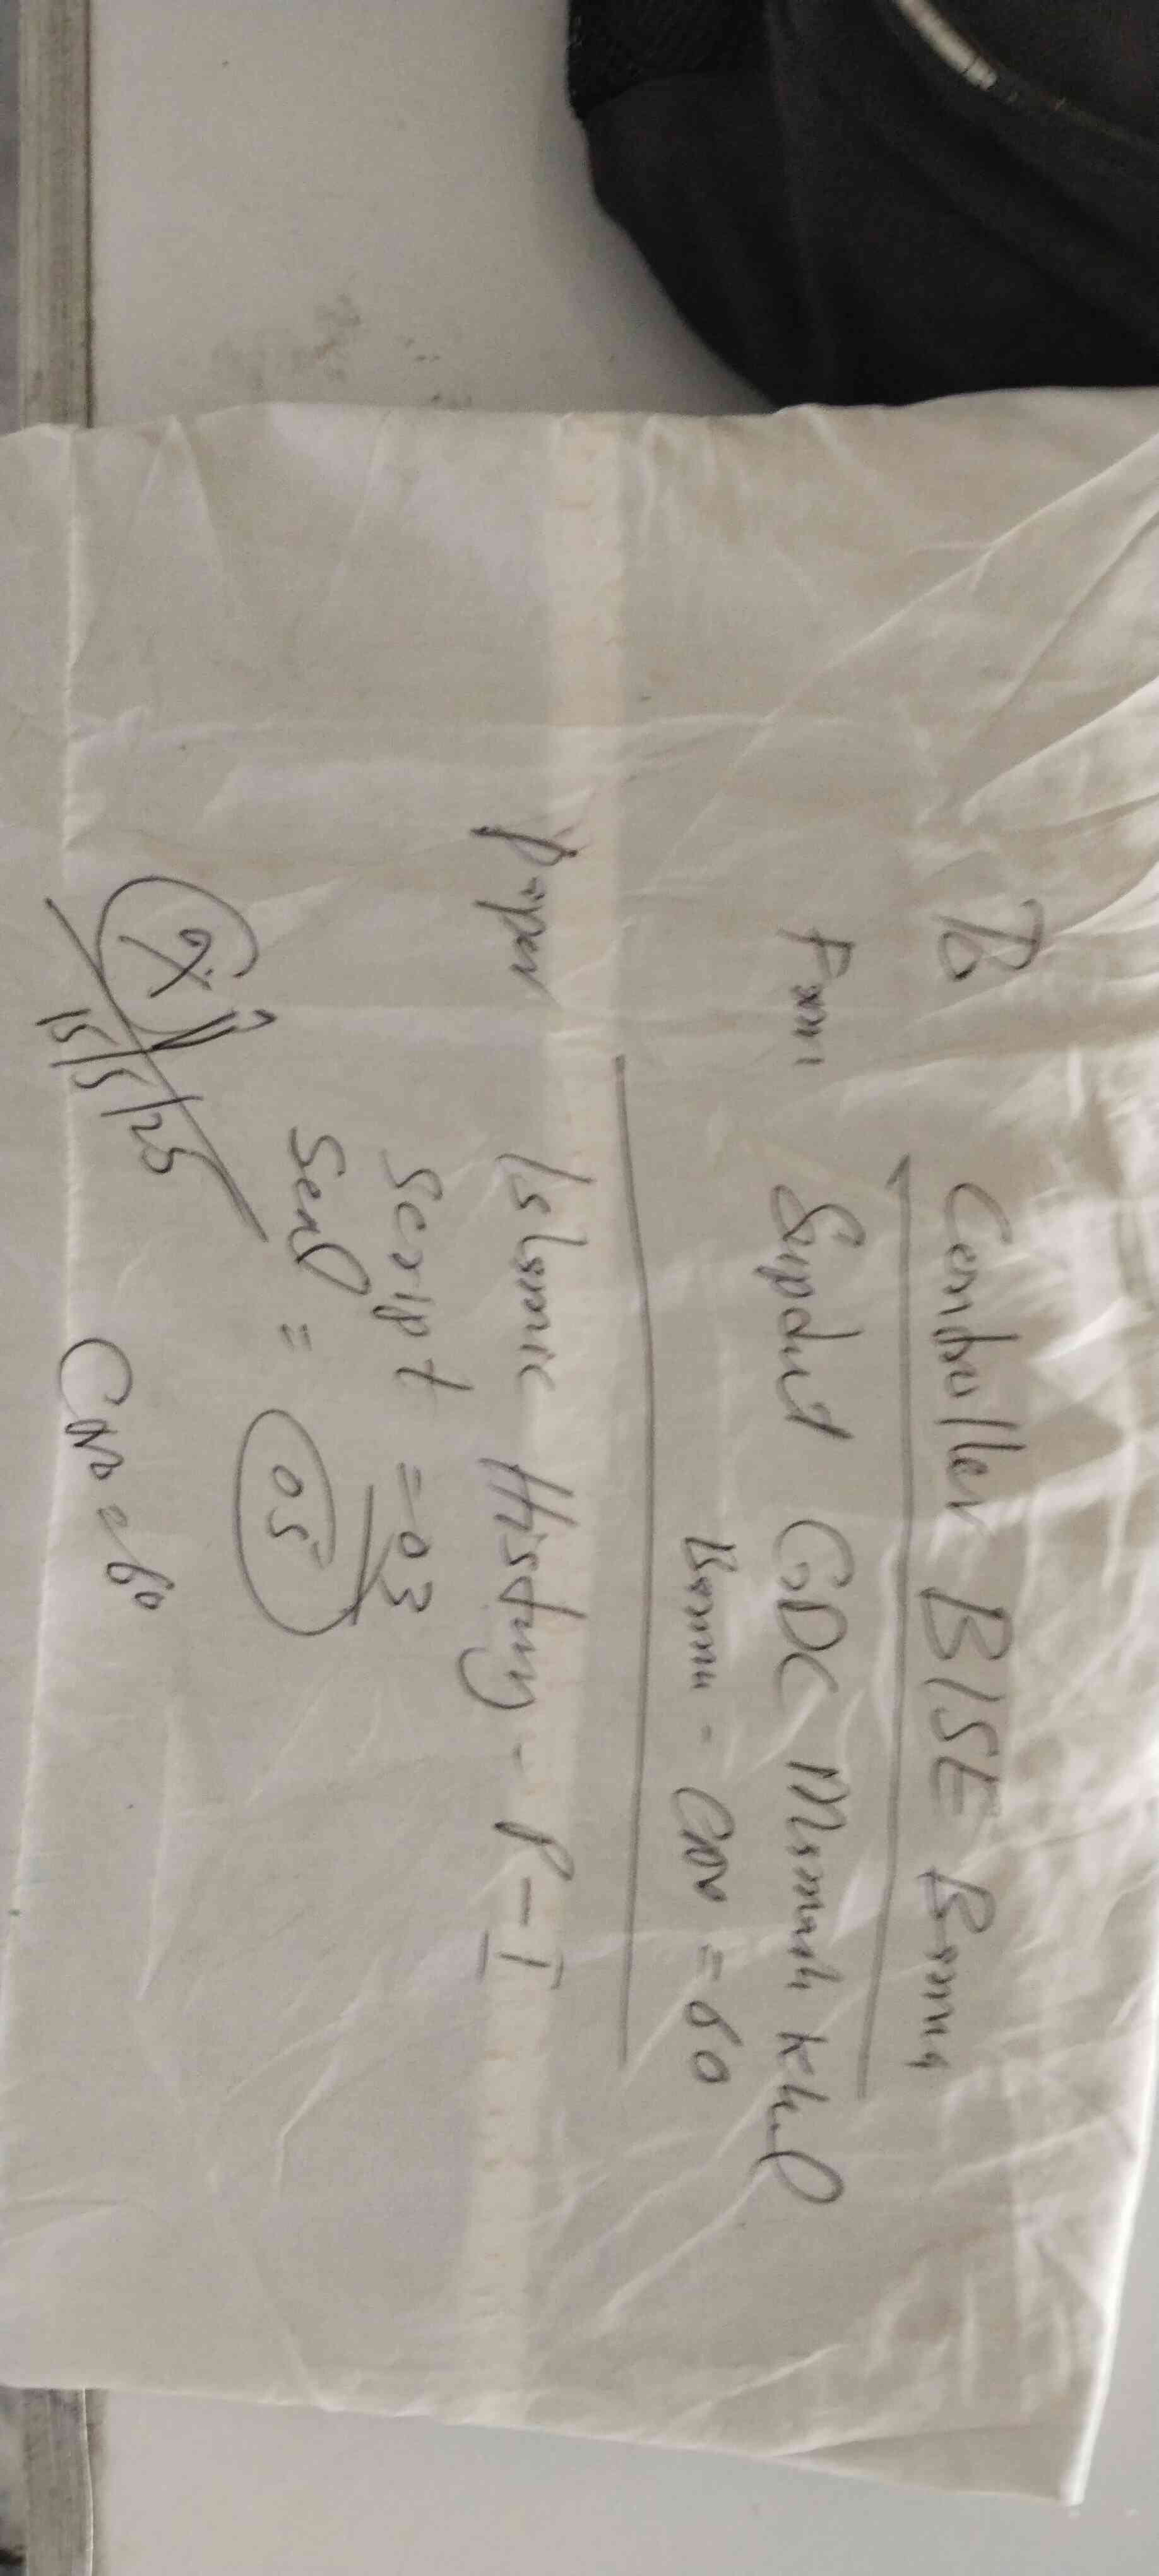 To Controller BISE Bannu
From Supdtt GDC Mamash Khel
Bannu - CNo = 60
Paper Islamic History - P-I
Script = 03
Send = 05
15/5/25
CNo = 60